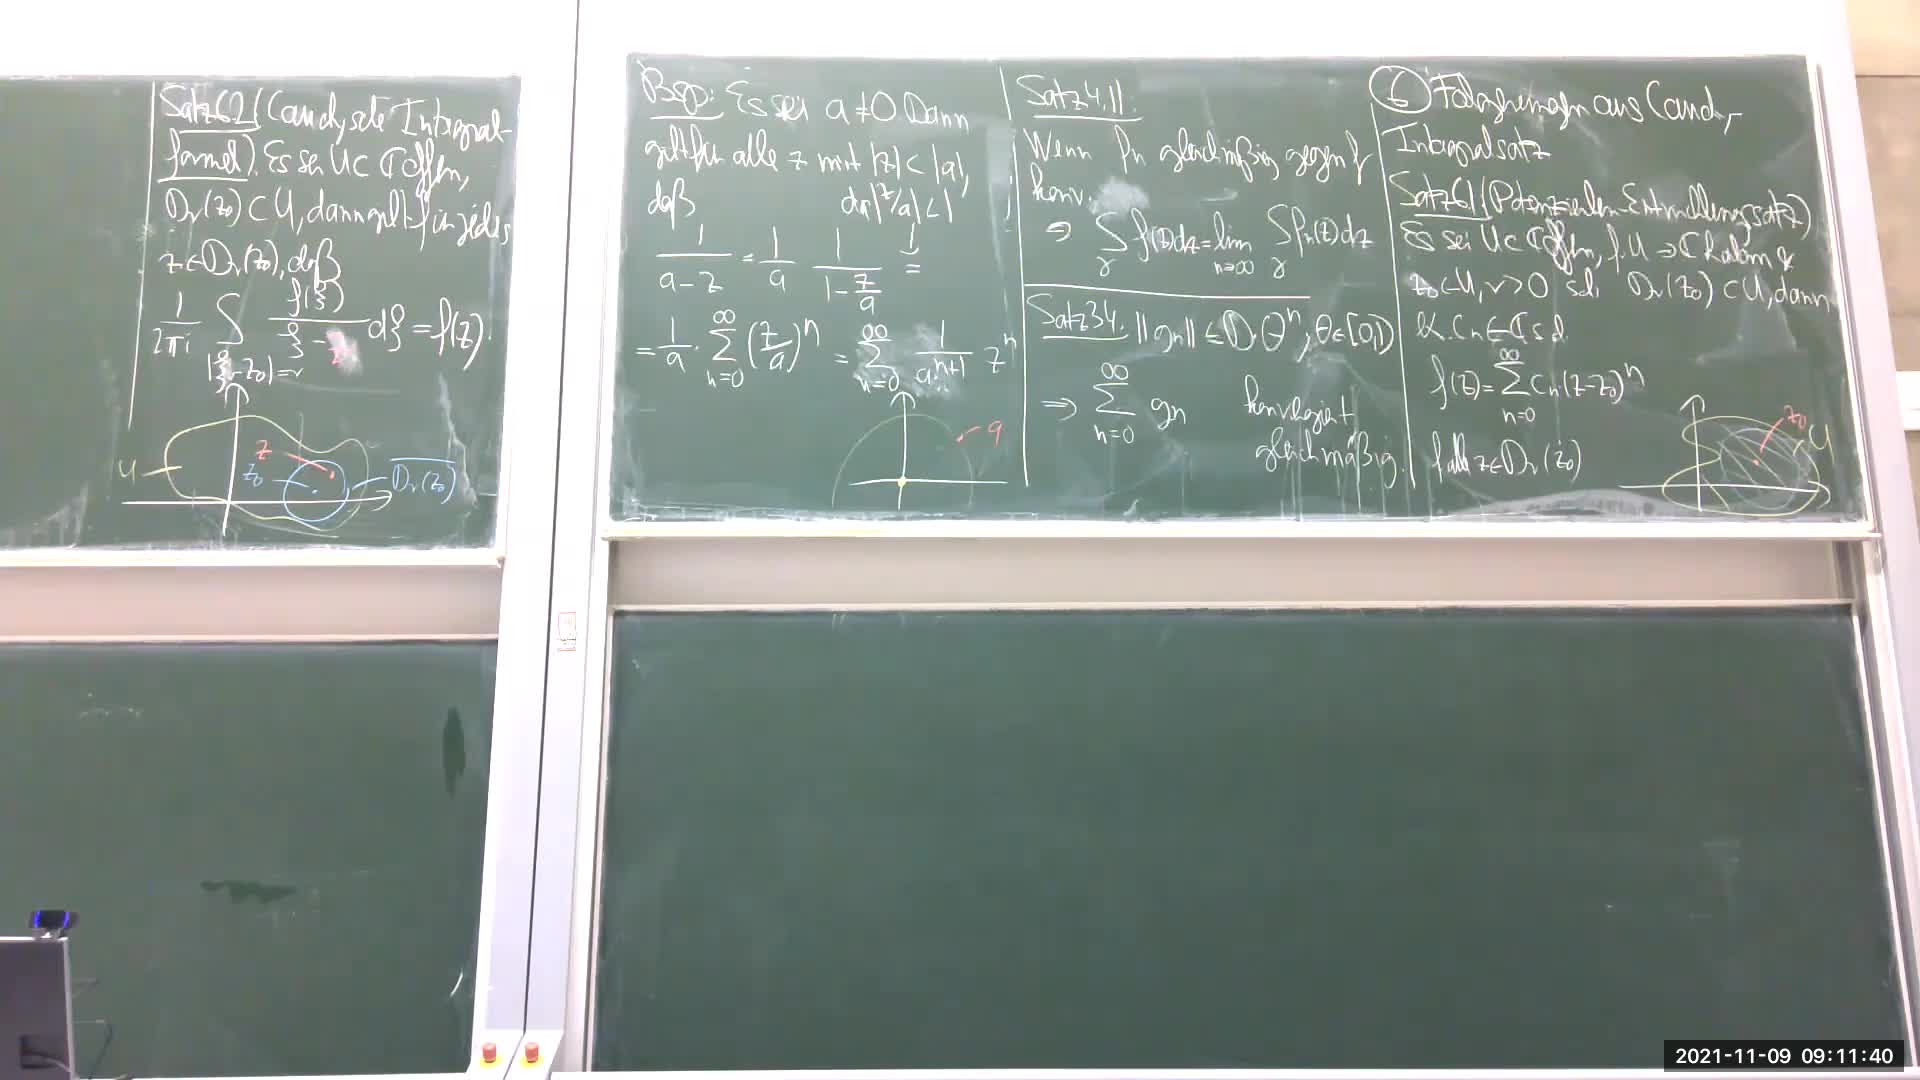 Satz 6.2 (Cauchysche Integral-
formel). Es sei U ⊂ ℂ offen,
D_r(z_0) ⊂ U, dann gilt für jedes
z ∈ D_r(z_0), daß
1/(2πi) ∫_{|ξ-z_0|=r} f(ξ)/(ξ-z) dξ = f(z).
z
z_0
U
D_r(z_0)
Bsp: Es sei a ≠ 0. Dann
gilt für alle z mit |z| < |a|,
daß
da |z/a| < 1
1/(a-z) = 1/a 1/(1-z/a) =
= 1/a · ∑_{n=0}^∞ (z/a)^n = ∑_{n=0}^∞ 1/a^{n+1} z^n
a
Satz 4.11.
Wenn f_n gleichmäßig gegen f
konv.
⇒ ∫_γ f(z)dz = lim_{n→∞} ∫_γ f_n(z)dz
Satz 3.4. ||g_n|| ≤ D·Θ^n, Θ∈[0,1)
⇒ ∑_{n=0}^∞ g_n konvergiert
gleichmäßig.
⑥ Folgerungen aus Cauchy
Integralsatz
Satz 6.1 (Potenzreihen-Entwicklungssatz)
Es sei U ⊂ ℂ offen, f: U → ℂ holom &
z_0 ∈ U, r > 0 sd. D_r(z_0) ⊂ U, dann
c_n ∈ ℂ sd
f(z) = ∑_{n=0}^∞ c_n (z-z_0)^n
f. alle z ∈ D_r(z_0)
z_0
U
2021-11-09 09:11:40